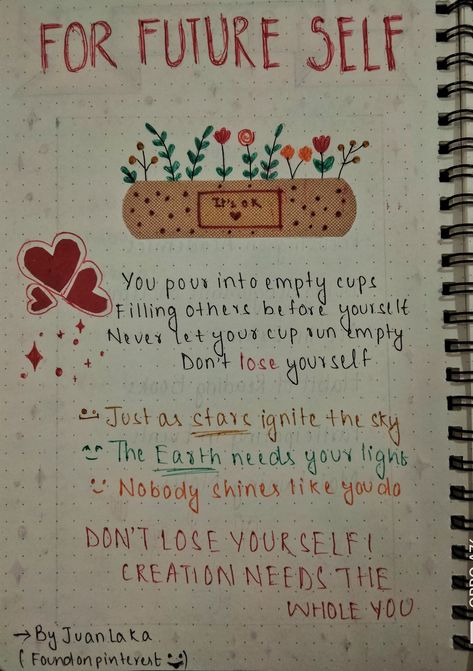 FOR FUTURE SELF
It's OK
You pour into empty cups
Filling others before yourself
Never let your cup run empty
Don't lose yourself
Just as stars ignite the sky
The Earth needs your light
Nobody shines like you do
DON'T LOSE YOURSELF!
CREATION NEEDS THE
WHOLE YOU
→ By Juanlaka
(Found on pinterest)